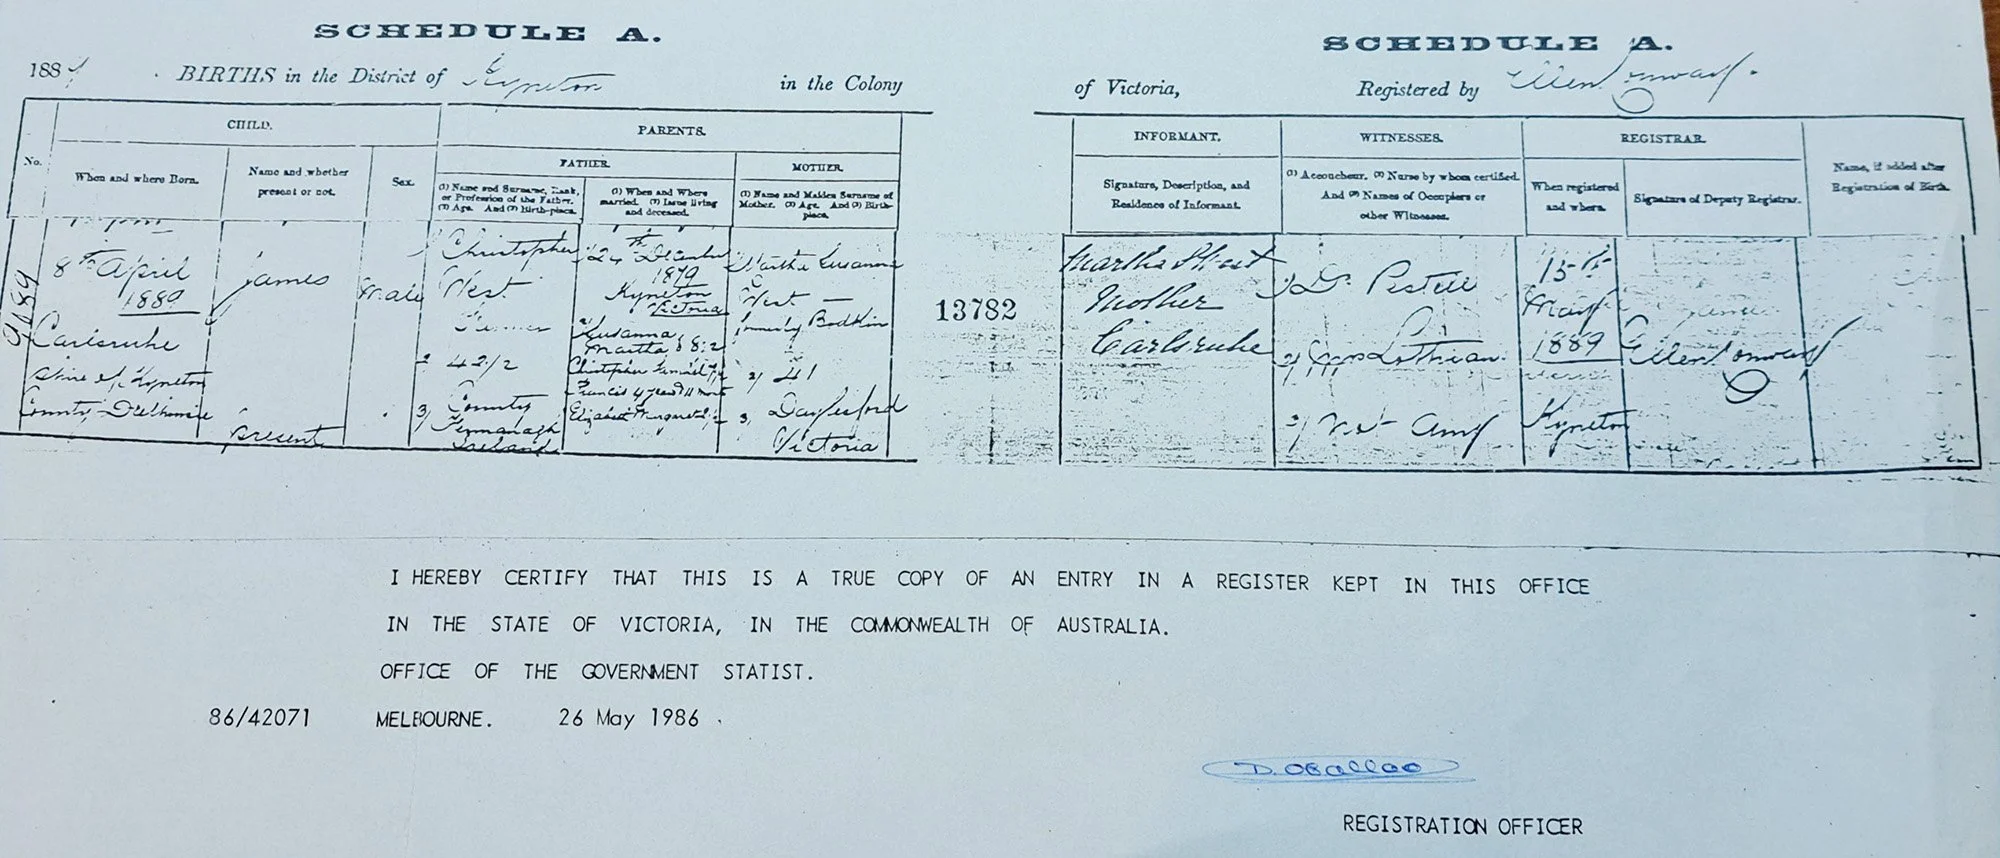 SCHEDULE A.
SCHEDULE A.
188 BIRTHS in the District of Kyneton in the Colony
of Victoria, Registered by Ellen Conway.
CHILD.
PARENTS.
INFORMANT.
WITNESSES.
REGISTRAR.
No.
When and where Born.
Name and whether
present or not.
Sex.
FATHER.
MOTHER.
(1) Name and Surname, Rank,
or Profession of the Father.
(2) Age. And (3) Birth-place.
(1) When and Where
married. (2) Issue living
and deceased.
(1) Name and Maiden Surname of
Mother. (2) Age. And (3) Birth-
place.
Signature, Description, and
Residence of Informant.
(1) Accoucheur. (2) Nurse by whom certified.
And (3) Names of Occupiers or
other Witnesses.
When registered
and where.
Signature of Deputy Registrar.
Name, if added after
Registration of Birth.
8th April
1889
Carlsruhe
Shire of Kyneton
County Dalhousie
James
present
Male
Christopher
West
Farmer
2 42 1/2
3) County
Fermanagh
Ireland
24th December
1879
Kyneton
Victoria
Susanna
Martha 8: 2
Christopher
Francis 4 years 11 mont
Elizabeth Margaret
Martha Susanna
West —
formerly Bodkin
2) 41
3) Daylesford
Victoria
13782
Martha West
Mother
Carlsruhe
1) Dr.
2) Mrs Lothian
3) Not any
15th
May
1889
Kyneton
Ellen Conway
I HEREBY CERTIFY THAT THIS IS A TRUE COPY OF AN ENTRY IN A REGISTER KEPT IN THIS OFFICE
IN THE STATE OF VICTORIA, IN THE COMMONWEALTH OF AUSTRALIA.
OFFICE OF THE GOVERNMENT STATIST.
86/42071 MELBOURNE. 26 May 1986
REGISTRATION OFFICER